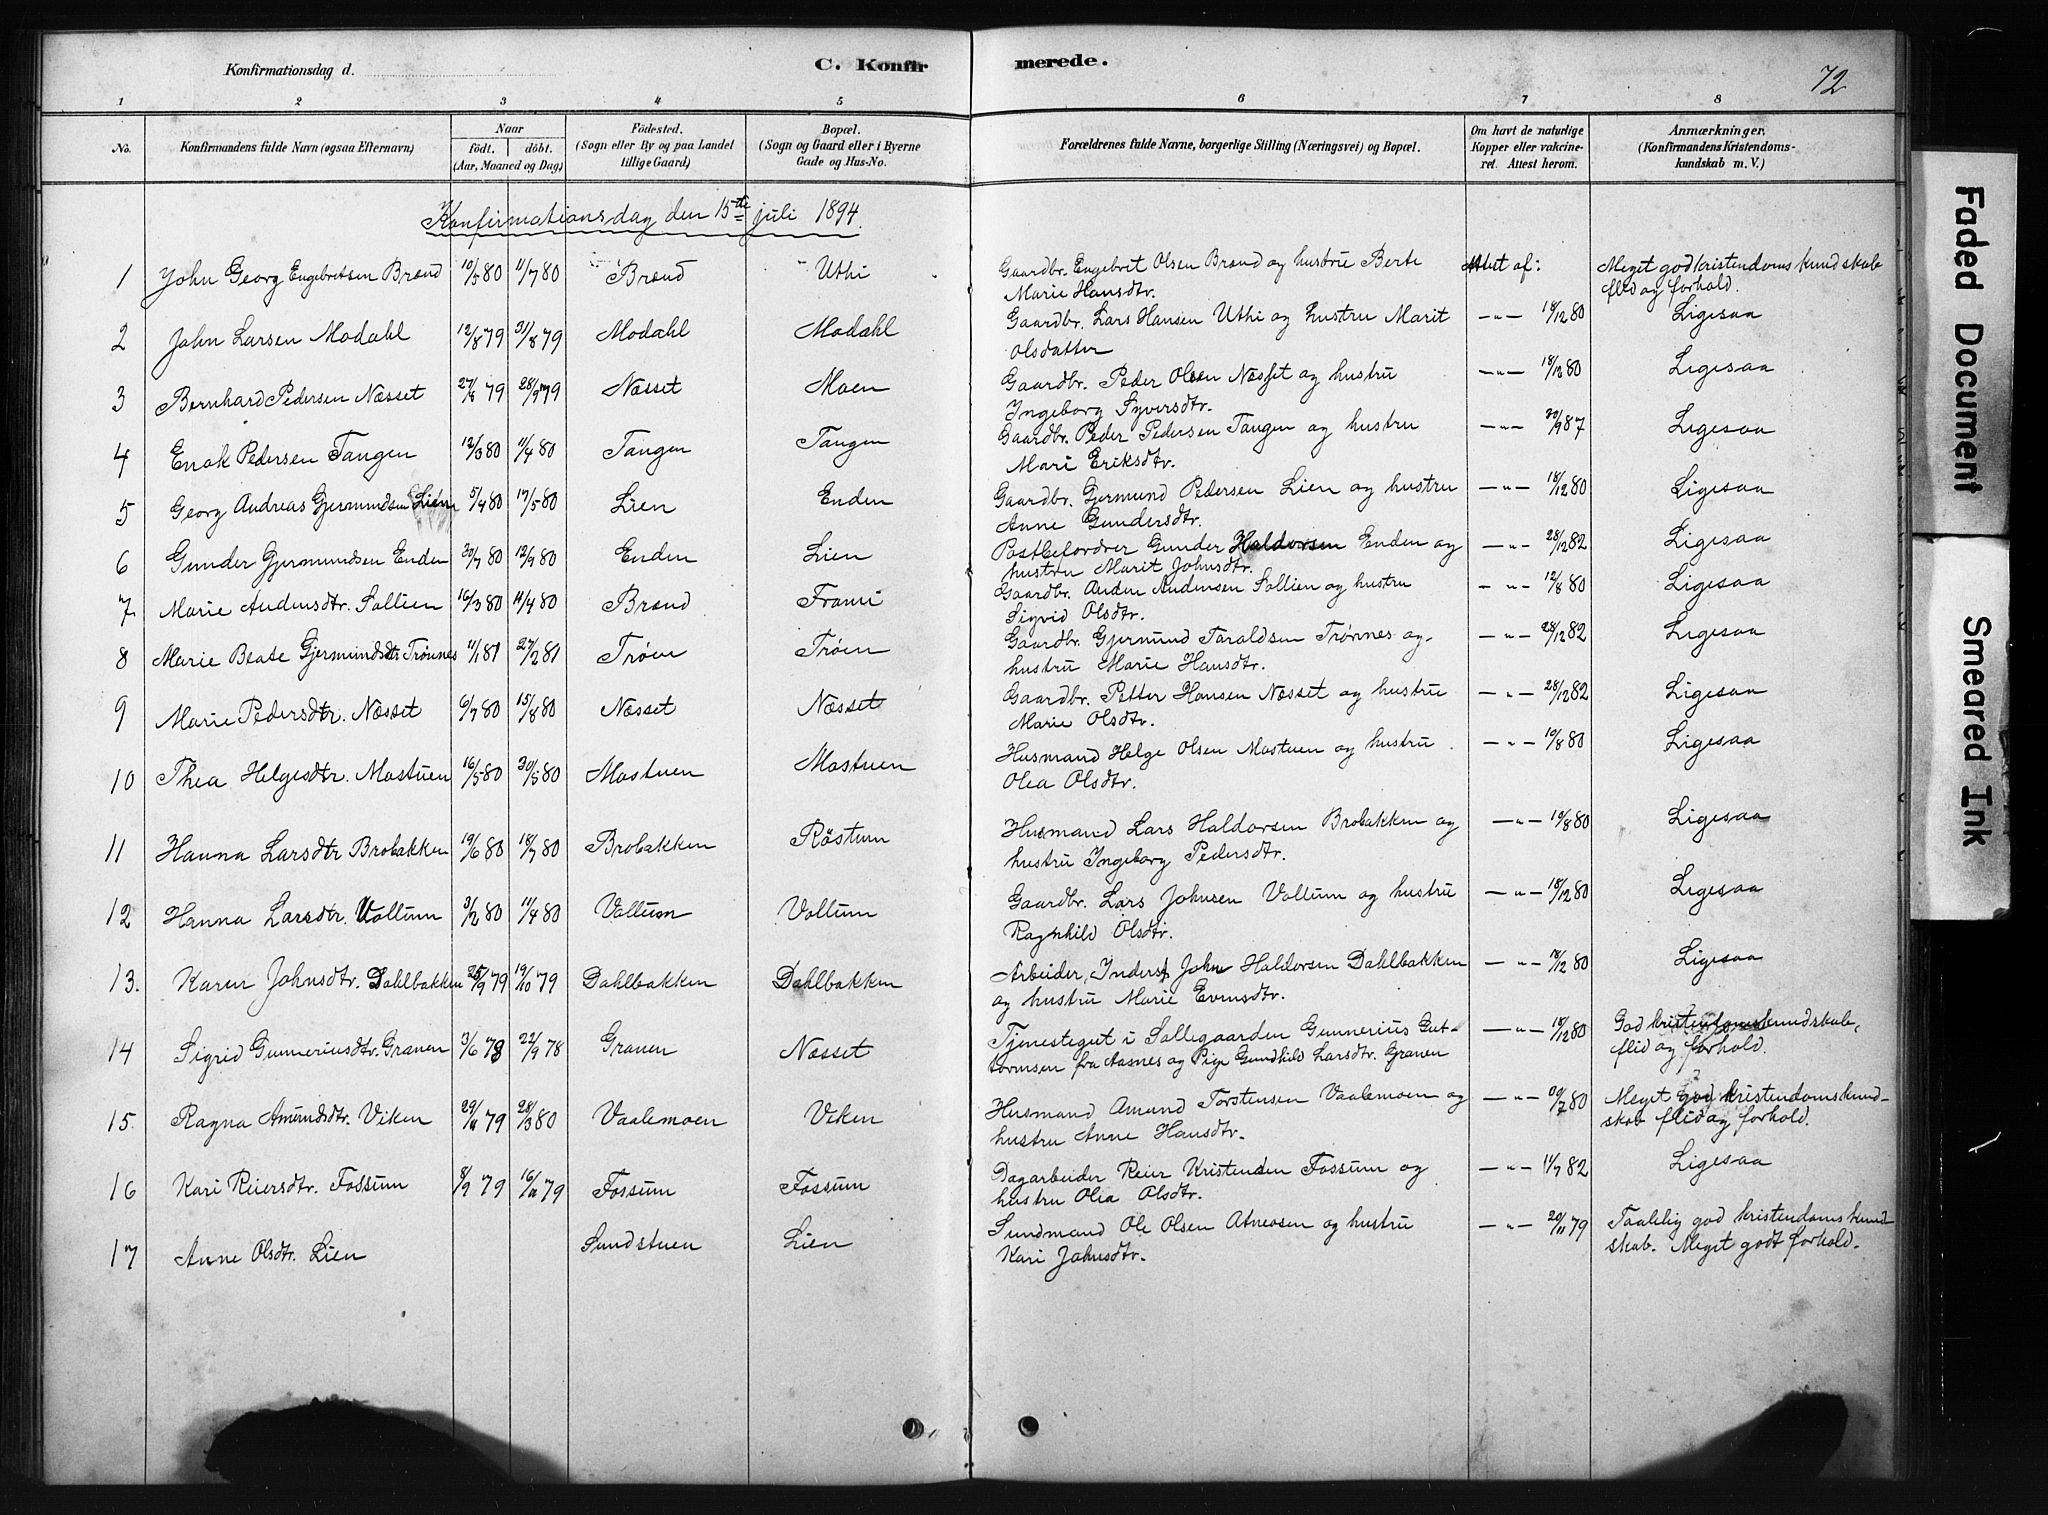 Konfirmationsdag d.
C. Konfirmerede.
72
1 2 3 4 5 6 7 8
No.
Konfirmandens fulde Navn (ogsaa Efternavn)
Naar
födt. döbt.
(Aar, Maaned og Dag)
Födested.
(Sogn eller By og paa Landet
tillige Gaard)
Bopæl.
(Sogn og Gaard eller i Byerne
Gade og Hus-No.
Forældrenes fulde Navne, borgerlige Stilling (Næringsvei) og Bopæl.
Om havt de naturlige
Kopper eller vakcine-
ret. Attest herom.
Anmærkninger.
(Konfirmandens Kristendoms-
kundskab m. V.)
Konfirmationsdag den 15de juli 1894.
1 John Georg Engebretsen Brænd 10/5 80 11/7 80 Brænd Uthi Gaardbr. Engebrit Olsen Brænd og hustru Berte Attet af: Meget god kristendomskundskab
Marie Hansdtr. flid og forhold.
2 John Larsen Modahl 12/8 79 31/8 79 Modahl Modahl Gaardbr. Lars Hansen Uthi og hustru Marit — " — 18/12 80 Ligesaa
Olsdatter
3 Bernhard Pedersen Næsset 27/8 79 28/9 79 Næsset Moen Gaardbr. Peder Olsen Næsset og hustru — " — 18/12 80 Ligesaa
Ingeborg Syversdtr.
4 Enok Pedersen Tangen 12/3 80 11/4 80 Tangen Tangen Gaardbr. Peder Pedersen Tangen og hustru — " — 30/9 87 Ligesaa
Mari Eriksdtr.
5 Georg Andreas Gjermundsen Lien 5/4 80 17/5 80 Lien Enden Gaardbr. Gjermund Pedersen Lien og hustru — " — 18/12 80 Ligesaa
Anne Gundersdtr.
6 Gunder Gjermundsen Enden 30/7 80 12/9 80 Enden Lien Postbefordrer Gunder Haldorsen Enden og — " — 28/12 82 Ligesaa
hustru Marit Johnsdtr.
7 Marie Andersdtr. Sollien 16/3 80 11/4 80 Brænd Frami Gaardbr. Anden Andersen Sollien og hustru — " — 12/8 80 Ligesaa
Sigrid Olsdtr.
8 Marie Beate Gjermundsdtr Trönnes 11/1 81 27/2 81 Tröen Tröen Gaardbr. Gjermund Taraldsen Trönnes og — " — 28/12 82 Ligesaa
hustru Marie Hansdtr.
9 Marie Pedersdtr. Næsset 6/7 80 15/8 80 Næsset Næsset Gaardbr. Petter Hansen Næsset og hustru — " — 28/12 82 Ligesaa
Marie Olsdtr.
10 Thea Helgesdtr. Mostuen 16/5 80 30/5 80 Mostuen Mostuen Husmand Helge Olsen Mostuen og hustru — " — 10/8 80 Ligesaa
Olea Olsdtr.
11 Hanna Larsdtr Brobakken 19/6 80 18/7 80 Brobakken Röstum Husmand Lars Haldorsen Brobakken og — " — 10/8 80 Ligesaa
hustru Ingeborg Pedersdtr.
12 Hanna Larsdtr. Vollum 3/2 80 11/4 80 Vollum Vollum Gaardbr. Lars Johnsen Vollum og hustru — " — 18/12 80 Ligesaa
Ragnhild Olsdtr.
13. Karen Johnsdtr. Dahlbakken 25/9 79 19/10 79 Dahlbakken Dahlbakken Arbeider, Inderst John Haldorsen Dahlbakken — " — 18/12 80 Ligesaa
og hustru Marie Evensdtr.
14 Sigrid Gunneriusdtr. Granen 3/6 78 22/9 78 Granen Næsset Tjenestegut i Sollegaarden Gunnerius Gut- — " — 18/12 80 God kristendomskundskab,
tormsen fra Aasnes og Pige Gundhild Larsdtr. Granen flid og forhold.
15. Ragna Amundsdtr. Viken 29/11 79 28/3 80 Vaalemoen Viken Husmand Amund Torstensen Vaalemoen og — " — 30/7 80 Meget god kristendomskund-
hustru Anne Hansdtr. skab flid og forhold.
16 Kari Reiersdtr. Fossum 8/9 79 16/11 79 Fossum Fossum Dagarbeider Reier Kristensen Fossum og — " — 11/7 82 Ligesaa
hustru Olea Olsdtr.
17 Anne Olsdtr. Lien Sundstuen Lien Sundmand Ole Olsen Atneosen og hustru — " — 20/11 79 Taalelig god kristendomskund
Kari Johnsdtr. skab. Meget godt forhold.
Faded Document
Smeared Ink